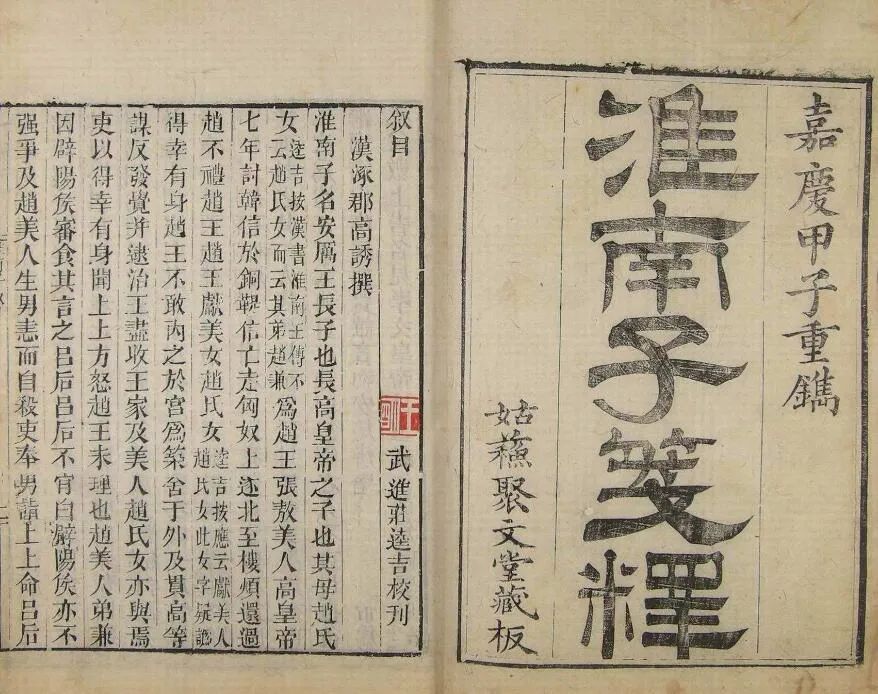 嘉慶甲子重鐫
淮南子箋釋
姑蘓聚文堂藏板
叙目
武進莊逵吉校刊
漢涿郡高誘撰
淮南子名安厲王長子也長高皇帝之子也其母趙氏
女逵吉按漢書淮南王傳不云趙氏女而云其弟趙兼爲趙王張敖美人高皇帝
七年討韓信於銅鞮信亡走匈奴上遂北至樓煩還過
趙不禮趙王趙王獻美女趙氏女逵吉按應云獻美人趙氏女此女字疑譌
得幸有身趙王不敢內之於宮爲築舍于外及貫高等
謀反發覺并逮治王盡收王家及美人趙氏女亦與焉
吏以得幸有身聞上上方怒趙王未理也趙美人弟兼
因辟陽侯審食其言之呂后呂后不肎白辟陽侯亦不
強爭及趙美人生男恚而自殺吏奉男詣上上命呂后